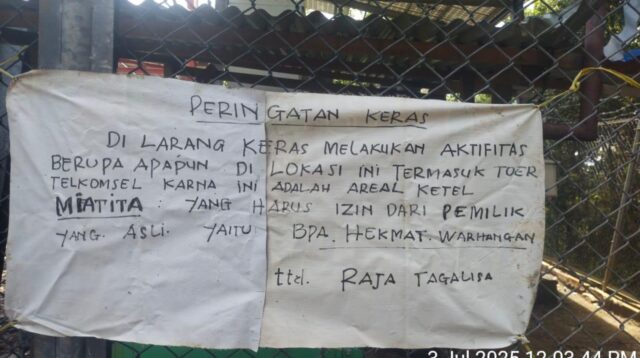 PERINGATAN KERAS
DI LARANG KERAS MELAKUKAN AKTIFITAS
BERUPA APAPUN DI LOKASI INI TERMASUK TOER
TELKOMSEL KARNA INI ADALAH AREAL KETEL
MIATITA : YANG HARUS IZIN DARI PEMILIK
YANG. ASLI. YAITU BPA. HEKMAT. WARHANGAN
ttd. RAJA TAGALISA
3 Jul 2025 12.03.44 PM